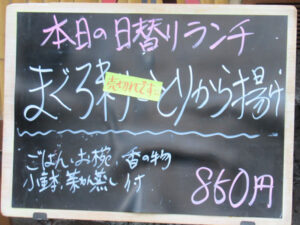 本日の日替りランチ
まぐろ 売切れです とりから揚げ
ごはん、お椀、香の物
小鉢、茶わん蒸し 付
850円